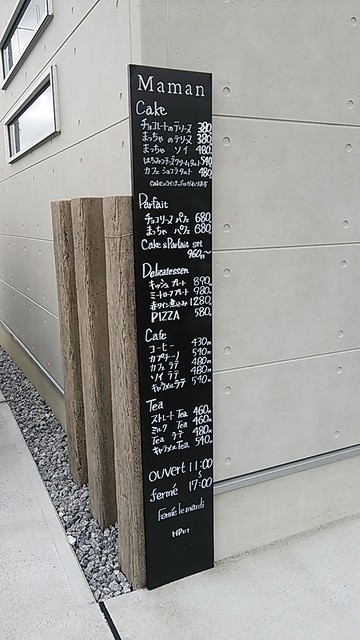 Maman
Cake
チョコレートのテリーヌ 380
まっちゃ のテリーヌ 380
まっちゃ ソイ 480
はちみつチーズクリームタルト 540
カフェ ショコラタルト 480
Parfait
チョコリーヌ パフェ 680
まっちゃ パフェ 680
Cake & Parfait set
960円〜
Delicatessen
キッシュ プレート 890
ミートローフプレート 980
赤ワイン煮込み 1280
PIZZA 580
Cafe
コーヒー 430円
カプチーノ 540円
カフェ ラテ 480円
ソイ ラテ 480円
キャラメルラテ 540円
Tea
ストレート Tea 460円
ミルク Tea 460円
Tea ラテ 480円
キャラメルTea 540円
ouvert 11:00
fermé 17:00
Fermé le mardi